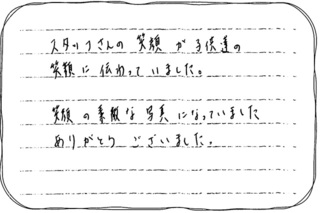 スタッフさんの笑顔が子供達の
笑顔に伝わっていました。
笑顔の素敵な写真になっていました
ありがとうございました。